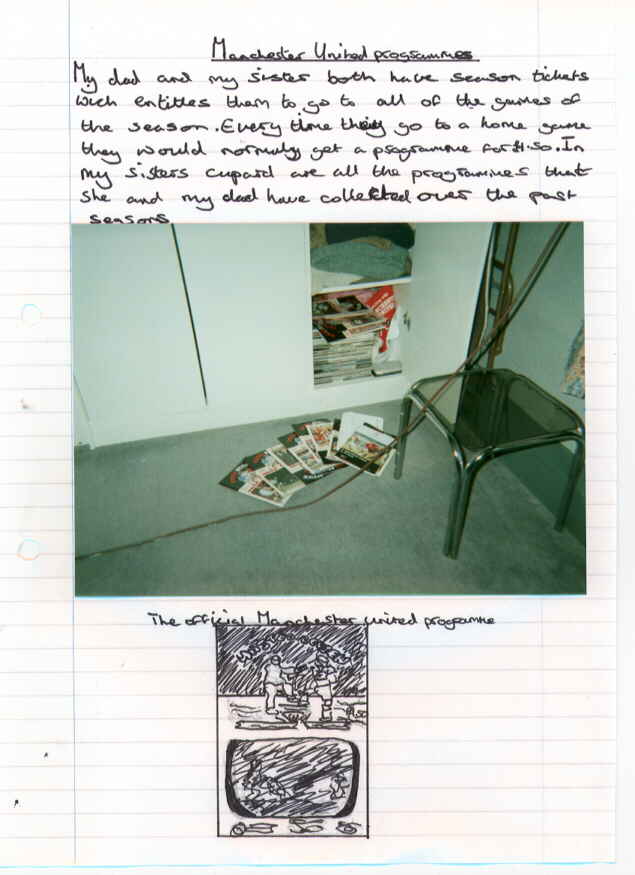 Manchester United programmes
My dad and my sister both have season tickets
wich entitles them to go to all of the games of
the season. Every time they go to a home game
they would normaly get a programme for £1.50. In
my sisters cupard are all the programmes that
she and my dad have collected over the past
seasons
The official Manchester united programme